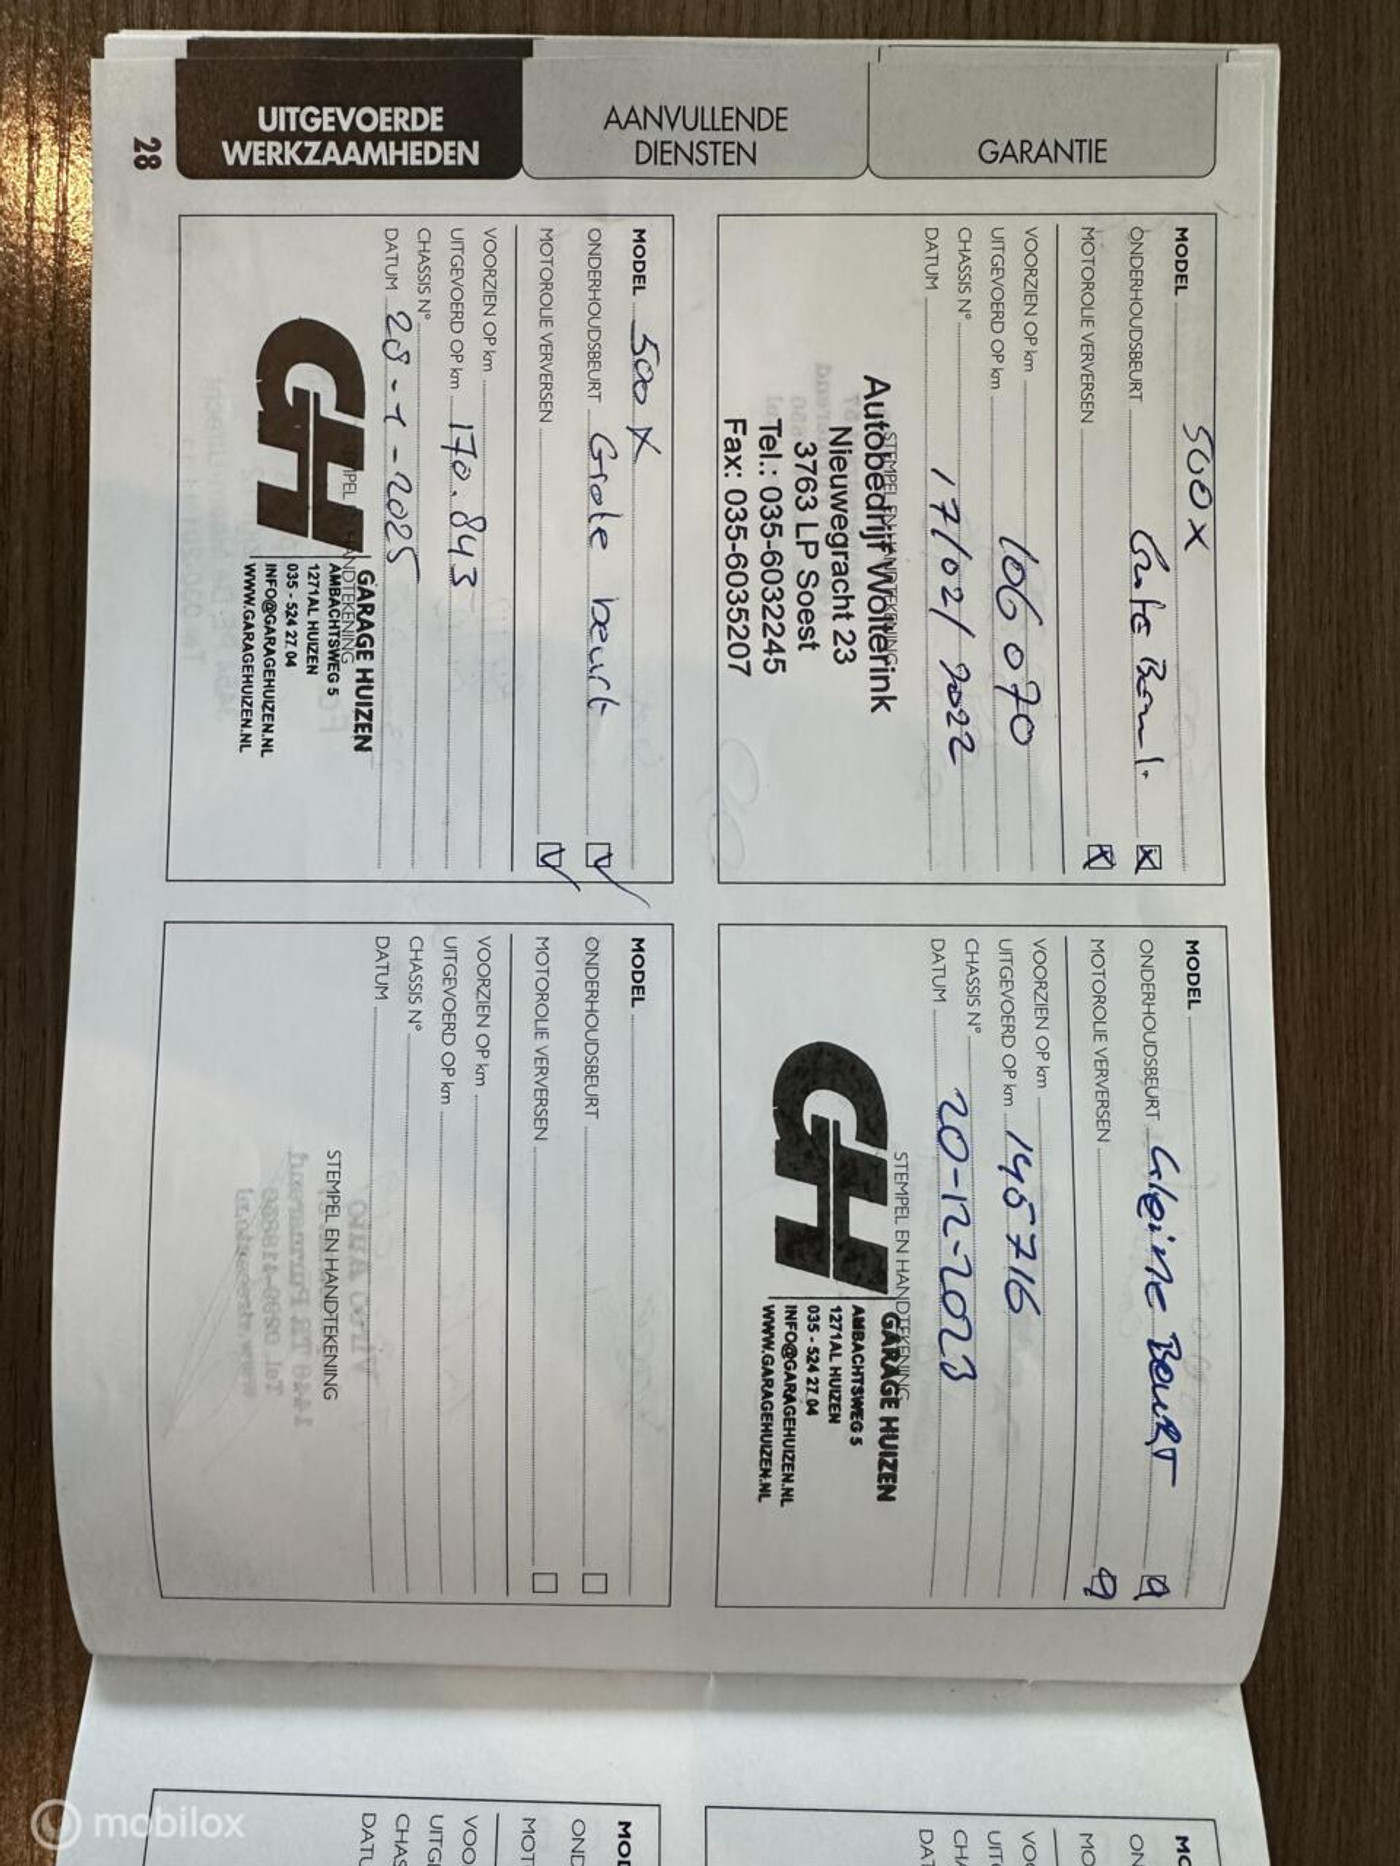 28
UITGEVOERDE
WERKZAAMHEDEN
AANVULLENDE
DIENSTEN
GARANTIE
MODEL 500X
ONDERHOUDSBEURT Grote Beurt.
MOTOROLIE VERVERSEN
VOORZIEN OP km
UITGEVOERD OP km 106070
CHASSIS N°
DATUM 17/02/2022
STEMPEL EN HANDTEKENING
Autobedrijf Wolferink
Nieuwegracht 23
3763 LP Soest
Tel.: 035-6032245
Fax: 035-6035207
MODEL
ONDERHOUDSBEURT Kleine BeuRT
MOTOROLIE VERVERSEN
VOORZIEN OP km
UITGEVOERD OP km 145716
CHASSIS N°
DATUM 20-12-2023
STEMPEL EN HANDTEKENING
GH
GARAGE HUIZEN
AMBACHTSWEG 5
1271AL HUIZEN
035 - 524 27 04
INFO@GARAGEHUIZEN.NL
WWW.GARAGEHUIZEN.NL
MODEL 500 X
ONDERHOUDSBEURT Grote beurt
MOTOROLIE VERVERSEN
VOORZIEN OP km
UITGEVOERD OP km 170.843
CHASSIS N°
DATUM 28-1-2025
GH
GARAGE HUIZEN
AMBACHTSWEG 5
1271AL HUIZEN
035 - 524 27 04
INFO@GARAGEHUIZEN.NL
WWW.GARAGEHUIZEN.NL
MODEL
ONDERHOUDSBEURT
MOTOROLIE VERVERSEN
VOORZIEN OP km
UITGEVOERD OP km
CHASSIS N°
DATUM
STEMPEL EN HANDTEKENING
mobilox